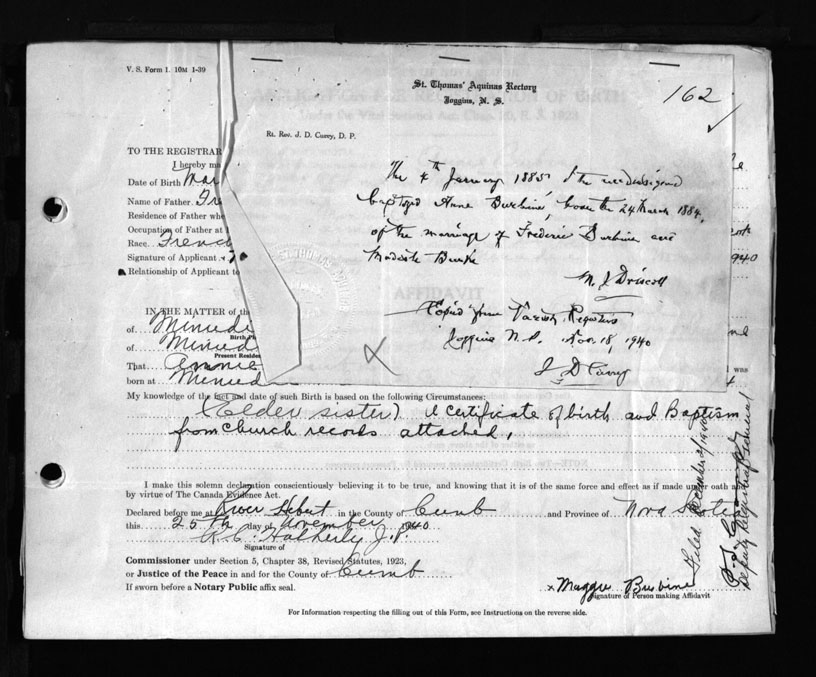 V. S. Form I. 10M 1-39
St. Thomas' Aquinas Rectory
Joggins, N. S.
162
Rt. Rev. J. D. Currey, D. P.
The 4th January 1885 I the undersigned
baptized Anne Burbine, born the 24 March 1884,
of the marriage of Frederic Burbine and
Burke
M. J. Driscoll
Copied from Parish Registers
Joggins N.S. Nov. 18, 1940
J D Currey
TO THE REGISTRAR
I hereby ma
Date of Birth Mar
Name of Father Fre
Residence of Father whe
Occupation of Father at
Race French
Signature of Applicant
Relationship of Applicant to
940
AFFIDAVIT
IN THE MATTER of the
of Minudi
Birth Pl
of Minud
Present Residen
That Annie
was
born at Minud
My knowledge of the fact and date of such Birth is based on the following Circumstances:
(Elder sister) A certificate of birth and Baptism
from church records attached.
I make this solemn declaration conscientiously believing it to be true, and knowing that it is of the same force and effect as if made under oath and
by virtue of The Canada Evidence Act.
Declared before me at River Hebert in the County of Cumb and Province of Nova Scotia
this 25th day of November 1940
R. C. Hatherly J.P.
Signature of
Commissioner under Section 5, Chapter 38, Revised Statutes, 1923,
or Justice of the Peace in and for the County of Cumb
If sworn before a Notary Public affix seal.
x Maggie Burbine
Signature of Person making Affidavit
For Information respecting the filling out of this Form, see Instructions on the reverse side.
Filed December 2/1940
Deputy Registrar General